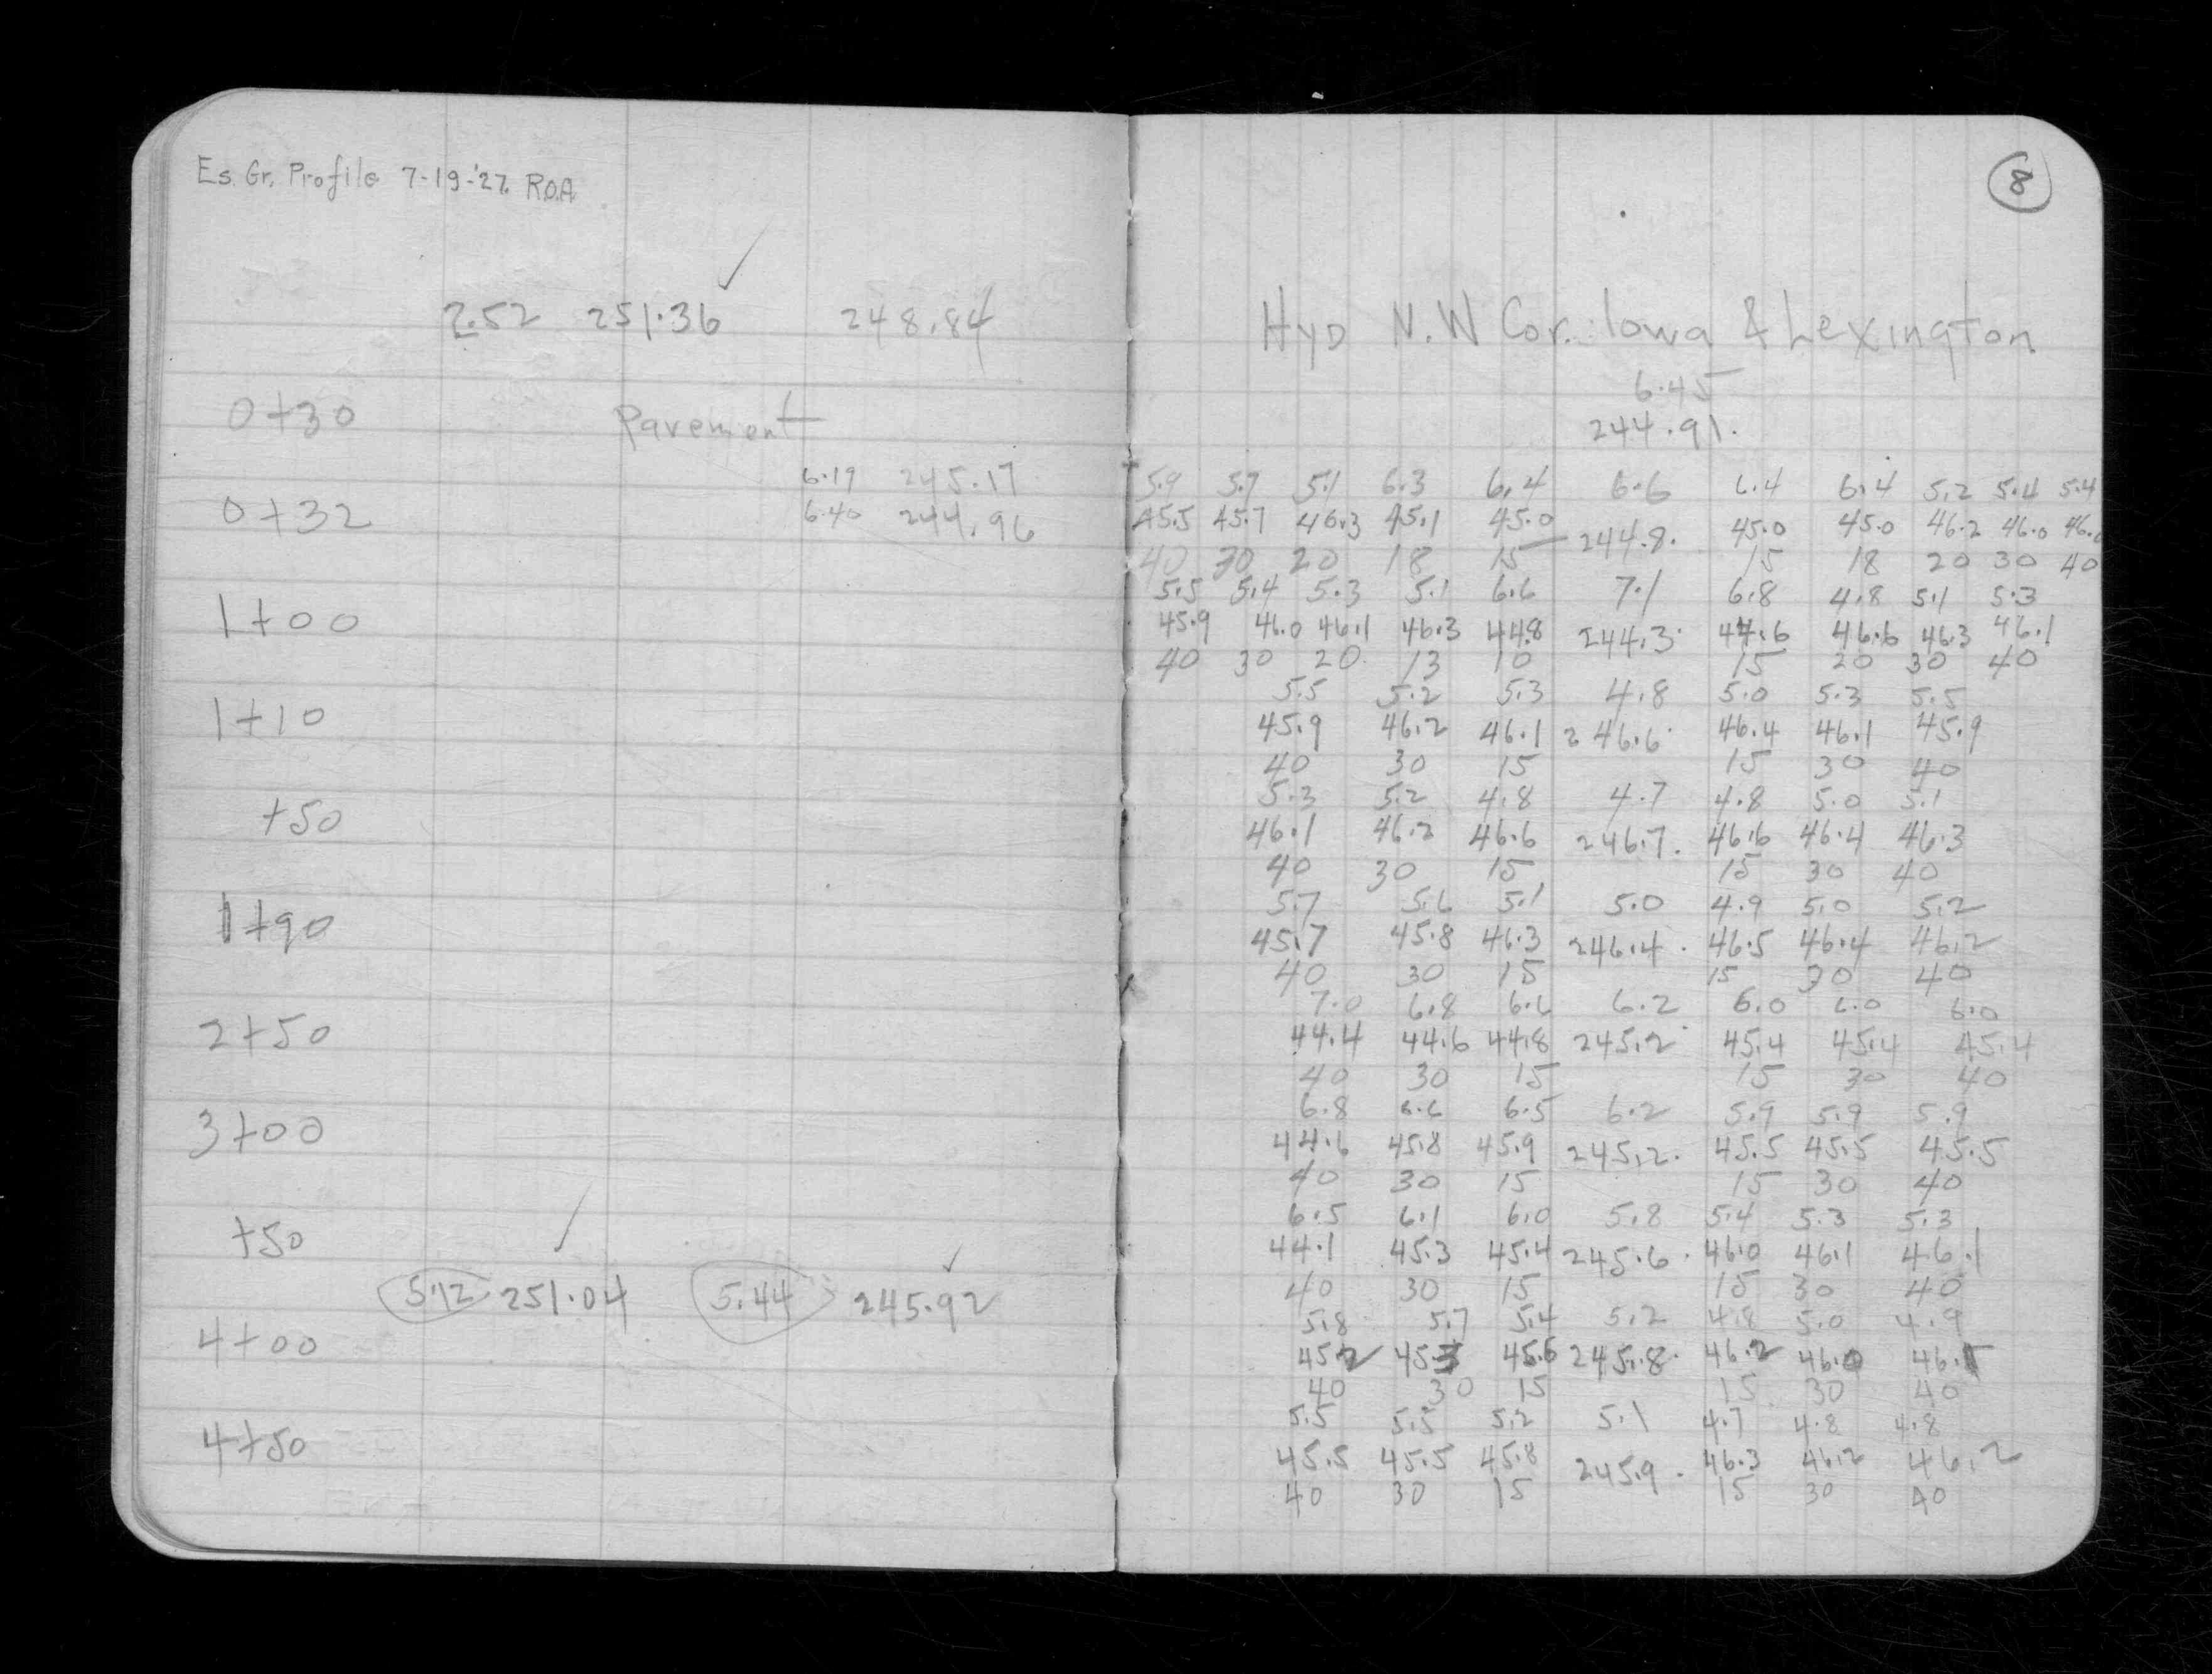 Es. Gr. Profile 7-19-'27. R.O.A.
8
2.52 251.36 248.84 Hyd N.W Cor. Iowa & Lexington
6.45
0+30 Pavement 244.91.
6.19 245.17 5.9 5.7 5.1 6.3 6.4 6.6 6.4 6.4 5.2 5.4 5.4
0+32 6.40 244.96 45.5 45.7 46.3 45.1 45.0 244.8. 45.0 45.0 46.2 46.0 46.0
40 30 20 18 15 15 18 20 30 40
5.5 5.4 5.3 5.1 6.6 7.1 6.8 4.8 5.1 5.3
1+00 45.9 46.0 46.1 46.3 44.8 244.3. 44.6 46.6 46.3 46.1
40 30 20 13 10 15 20 30 40
5.5 5.2 5.3 4.8 5.0 5.3 5.5
1+10 45.9 46.2 46.1 246.6. 46.4 46.1 45.9
40 30 15 15 30 40
5.3 5.2 4.8 4.7 4.8 5.0 5.1
+50 46.1 46.2 46.6 246.7. 46.6 46.4 46.3
40 30 15 15 30 40
5.7 5.6 5.1 5.0 4.9 5.0 5.2
1+90 45.7 45.8 46.3 246.4. 46.5 46.4 46.2
40 30 15 15 30 40
7.0 6.8 6.6 6.2 6.0 6.0 6.0
2+50 44.4 44.6 44.8 245.2. 45.4 45.4 45.4
40 30 15 15 30 40
6.8 6.6 6.5 6.2 5.9 5.9 5.9
3+00 44.6 45.8 45.9 245.2. 45.5 45.5 45.5
40 30 15 15 30 40
6.5 6.1 6.0 5.8 5.4 5.3 5.3
+50 44.1 45.3 45.4 245.6. 46.0 46.1 46.1
5.12 251.04 5.44 245.92 40 30 15 15 30 40
5.8 5.7 5.4 5.2 4.8 5.0 4.9
4+00 45.2 45.3 45.6 245.8. 46.2 46.0 46.1
40 30 15 15 30 40
5.5 5.5 5.2 5.1 4.7 4.8 4.8
4+50 45.5 45.5 45.8 245.9. 46.3 46.2 46.2
40 30 15 15 30 40